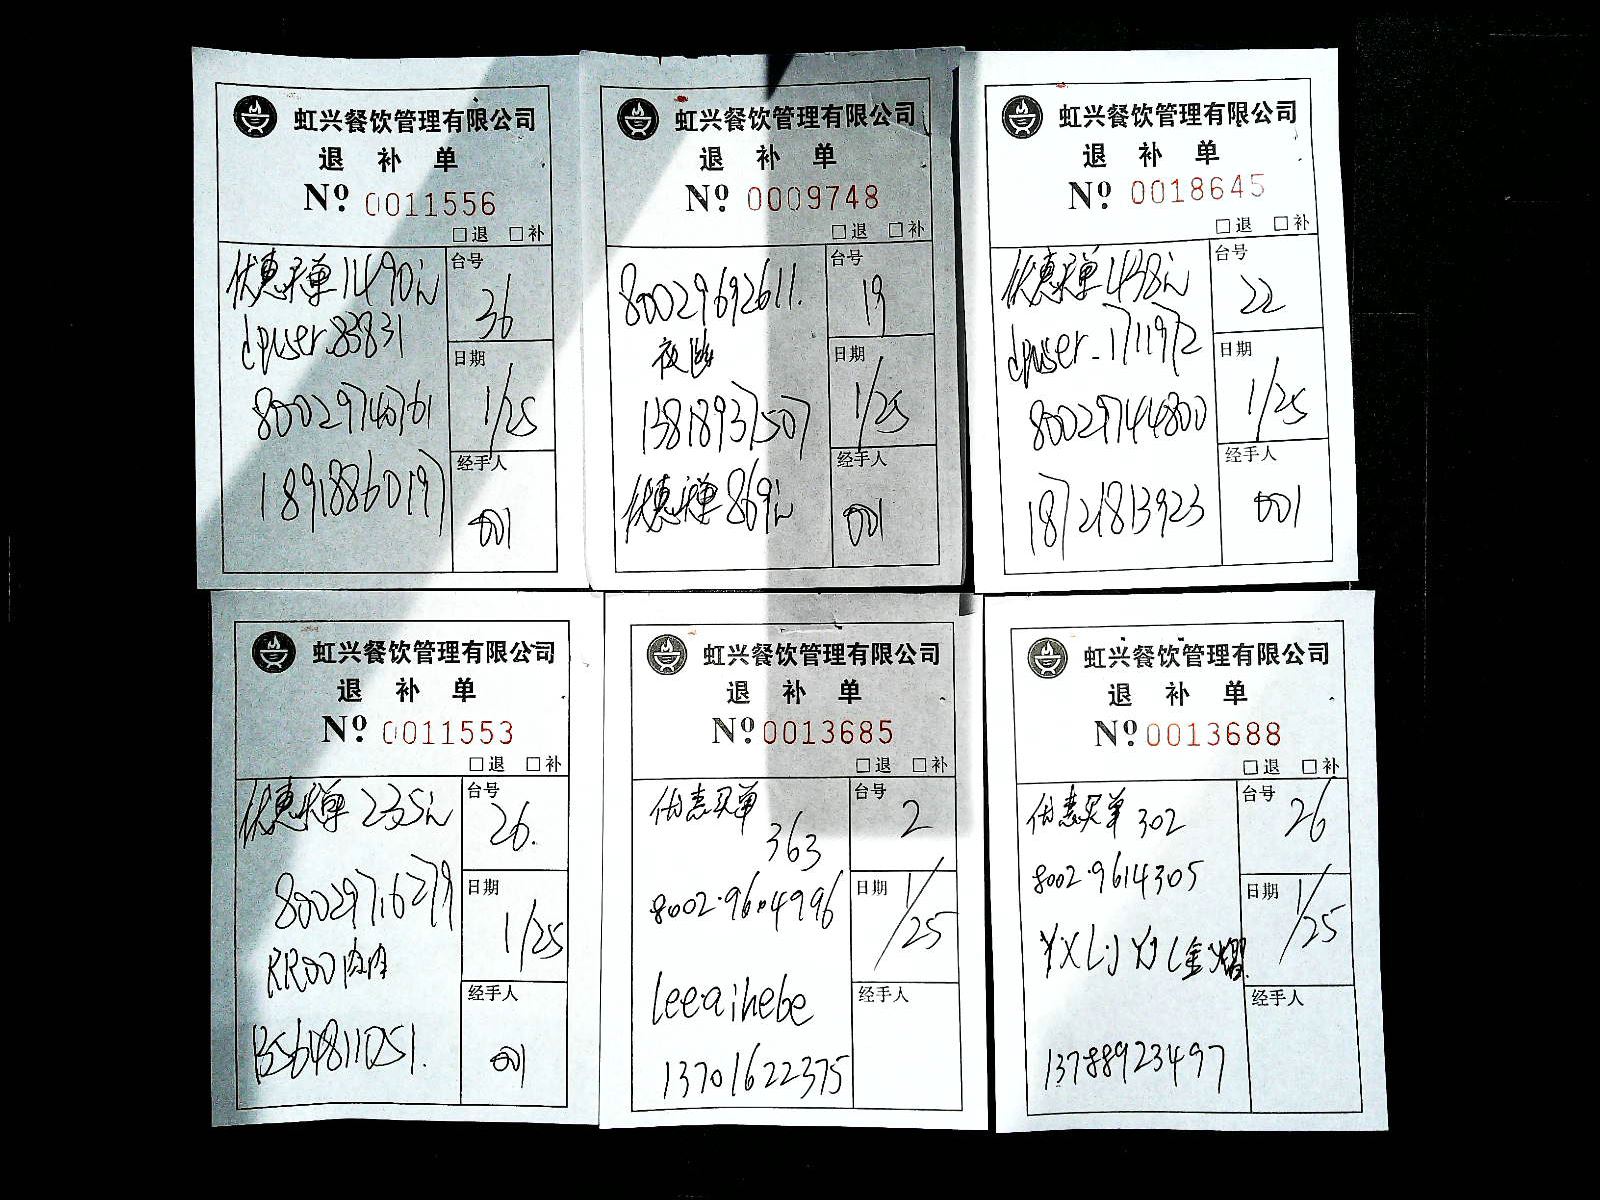 虹兴餐饮管理有限公司
退 补 单
Nº 0011556
□退 □补
优惠买单1490元
dpuser.83831
80029740761
18918860197
台号
36
日期
1/25
经手人
001
虹兴餐饮管理有限公司
退 补 单
Nº 0009748
□退 □补
80029692611.
夜
13818937507
优惠买单869元
台号
19
日期
1/25
经手人
001
虹兴餐饮管理有限公司
退 补 单
Nº 0018645
□退 □补
优惠买单1438元
dpuser-1711972
80029744800
18721813923
台号
22
日期
1/25
经手人
001
虹兴餐饮管理有限公司
退 补 单
Nº 0011553
□退 □补
优惠买单 235元
80029716279
RR00肉肉
13564811051.
台号
26.
日期
1/25
经手人
001
虹兴餐饮管理有限公司
退 补 单
Nº 0013685
□退 □补
优惠买单
363
8002·9604996
leeaihebe
13701622375
台号
2
日期
1/25
经手人
虹兴餐饮管理有限公司
退 补 单
Nº 0013688
□退 □补
优惠买单 302
8002·9614305
13788923497
台号
26
日期
1/25
经手人